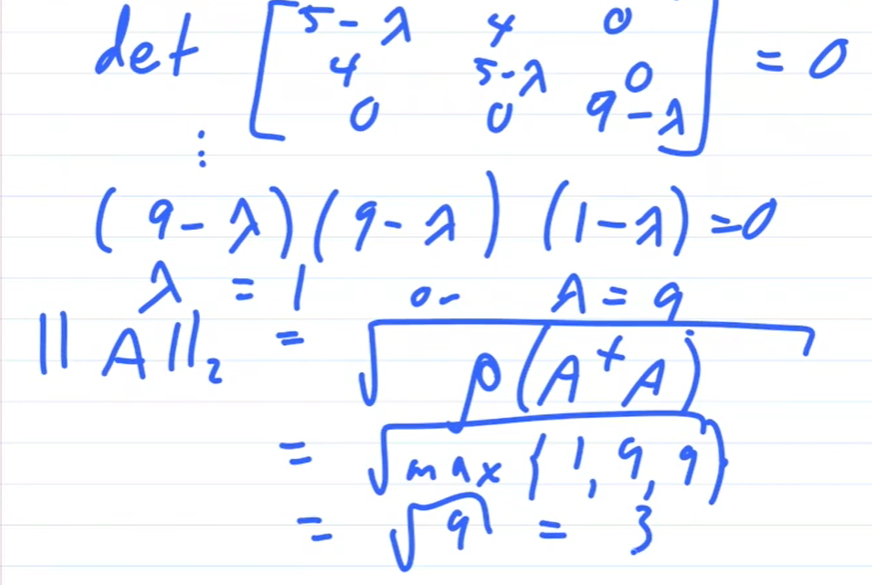 det [ 5-λ 4 0
4 5-λ 0 = 0
0 0 9-λ ]
⋮
(9-λ)(9-λ)(1-λ)=0
λ = 1 or λ = 9
||A||₂ = √ρ(A^t A)
= √max{1, 9, 9}
= √9 = 3